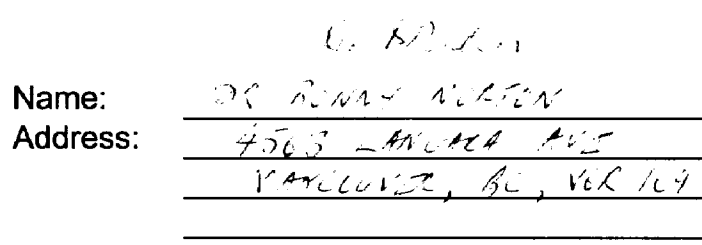 Name: DR RONNY NORTON
Address: 4563 LANGARA AVE
VANCOUVER, BC, V6R 1C9